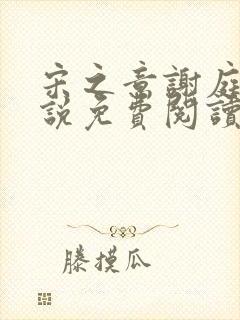 宋之意謝庭
說免費閱讀
滕摸瓜